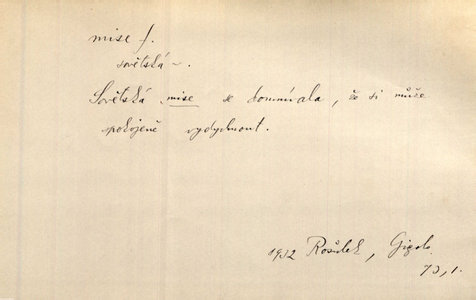 mise f.
sovětská ~.
Sovětská mise se domnívala, že si může
pokojeně vydychnout.
1932 Rosůlek, Gigolo
73, 1.